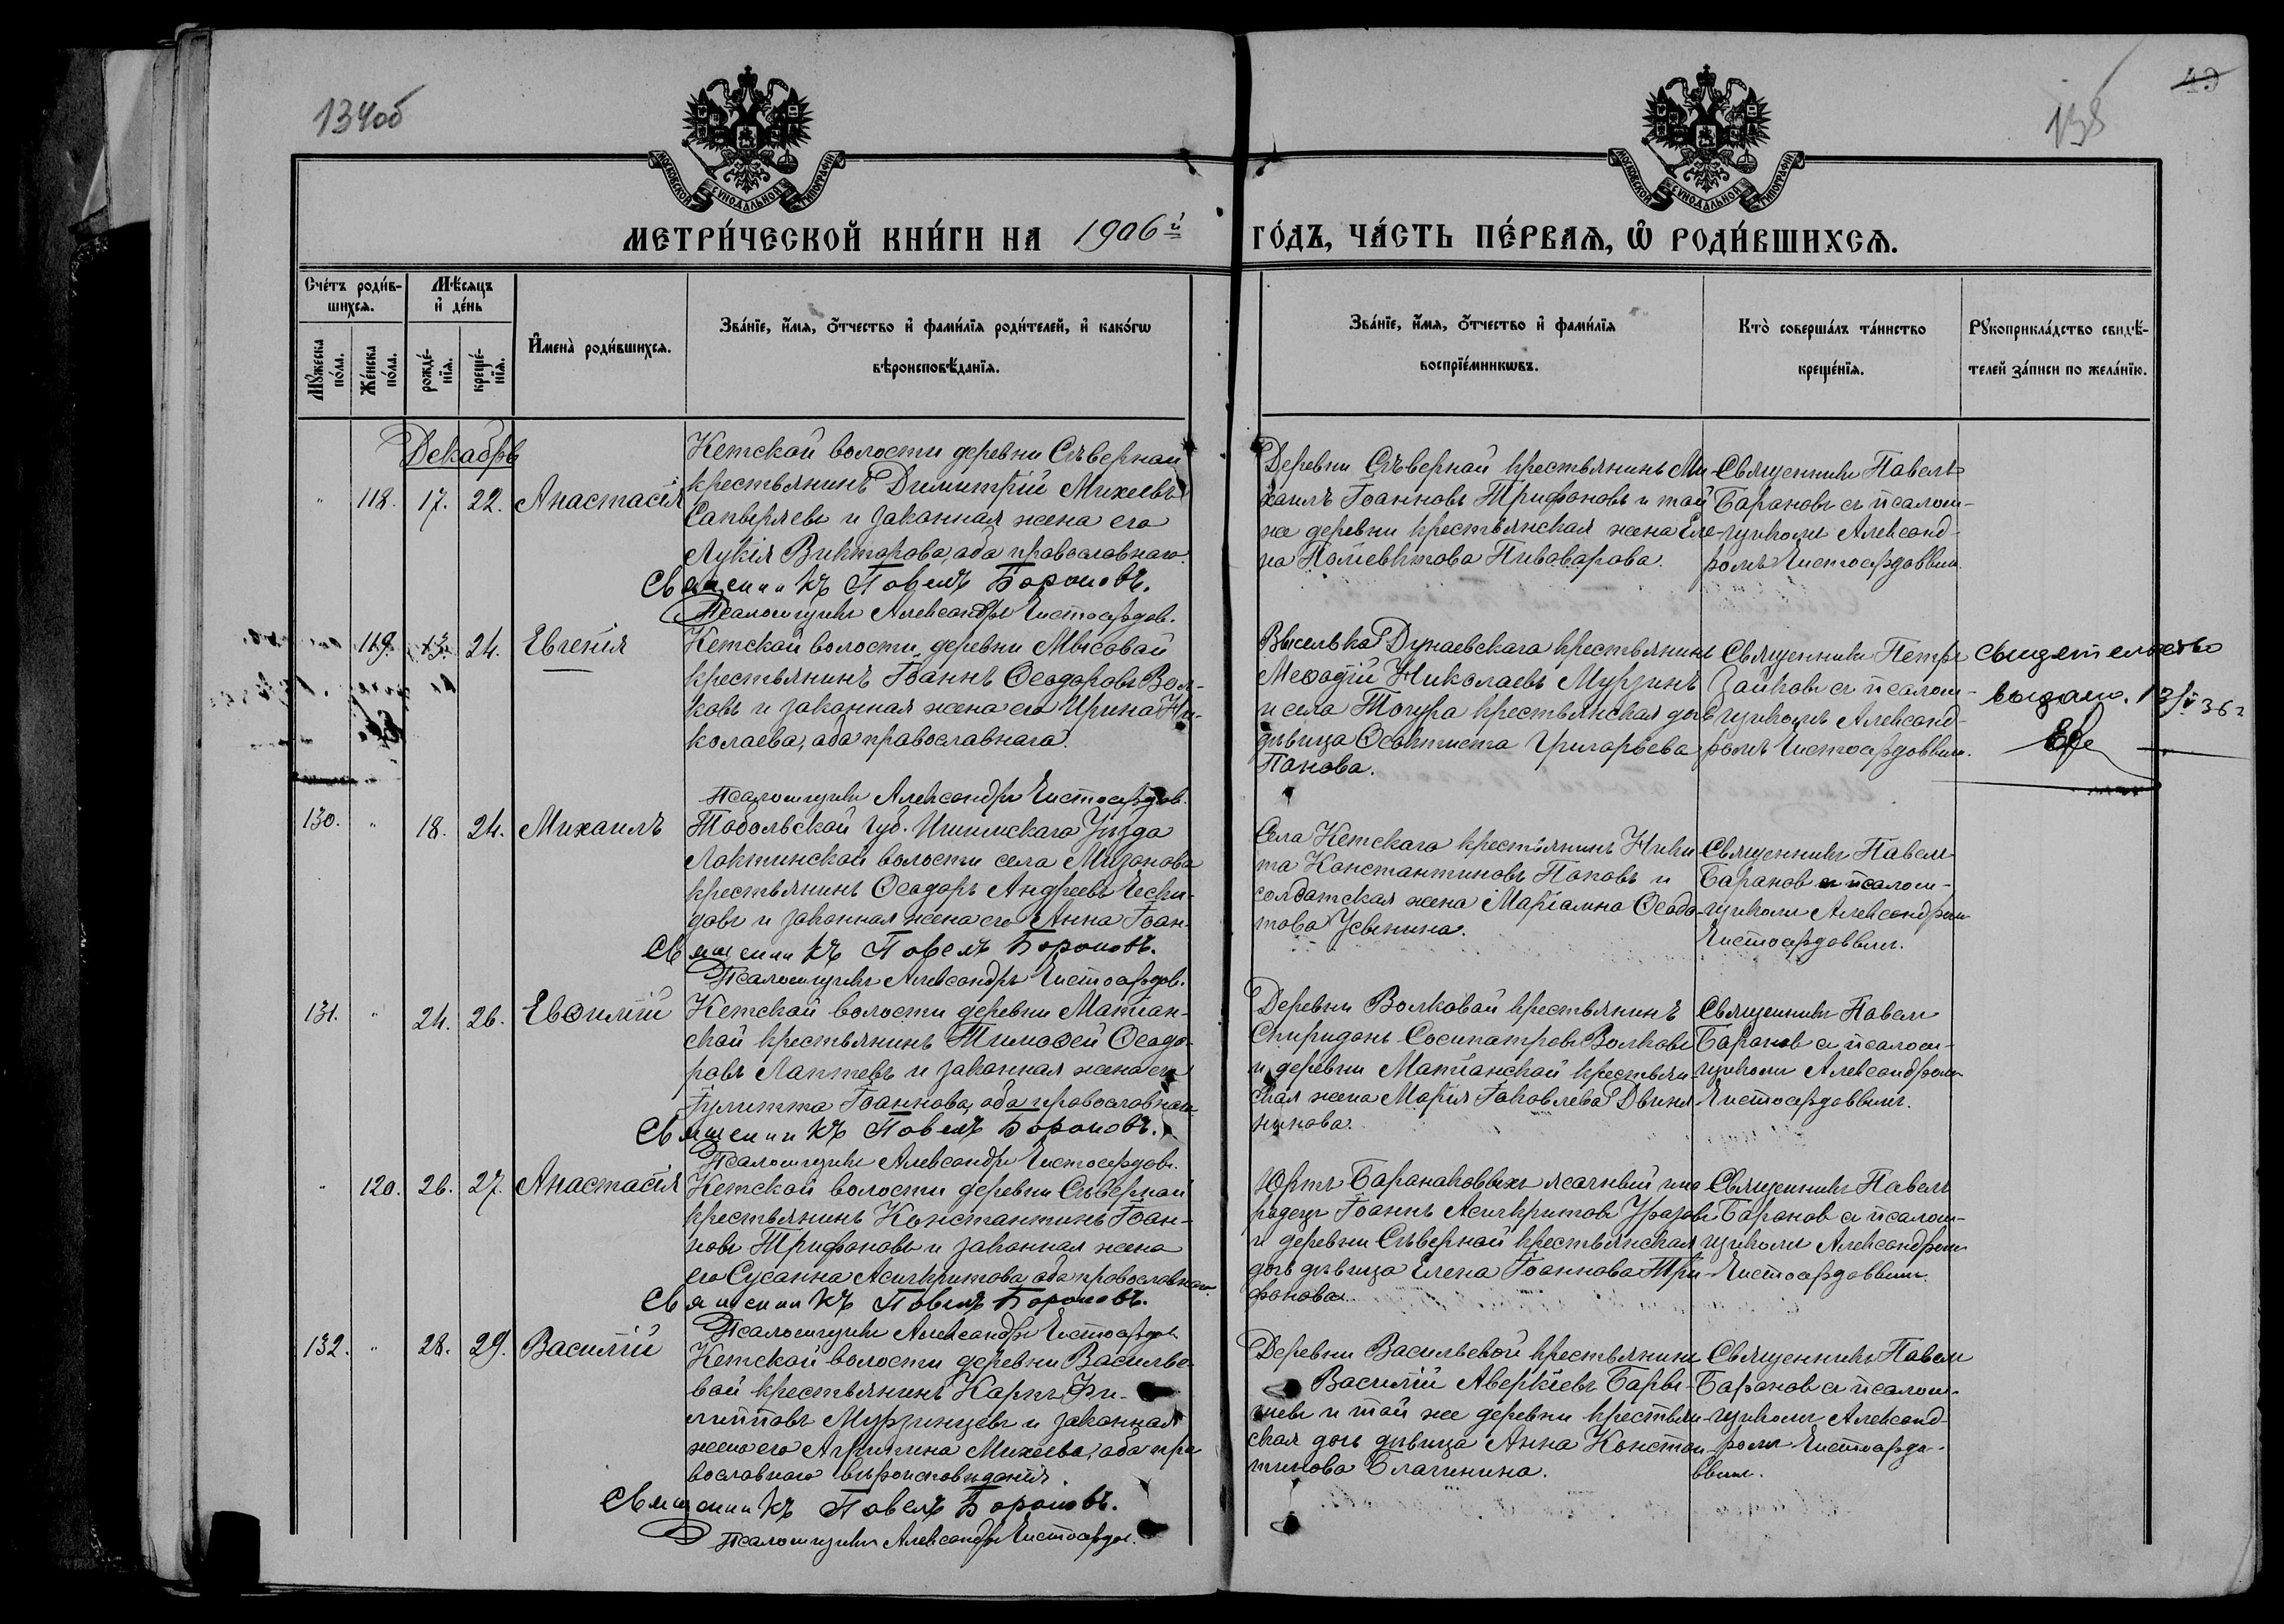 134об
135
49
МОСКОВСКОЙ СѴНОДАЛЬНОЙ ТИПОГРАФІИ
МОСКОВСКОЙ СѴНОДАЛЬНОЙ ТИПОГРАФІИ
МЕТРИ́ЧЕСКОЙ КНИ́ГИ НА 1906й ГО́ДЪ, ЧА́СТЬ ПЕ́РВАѦ, Ѡ҆ РОДИ́ВШИХСѦ.
Сче́тъ роди́в-
шихсѧ.
Мѣ́сѧцъ
и҆ де́нь
Мꙋ́жеска
по́ла.
Же́нска
по́ла.
рожде́-
нїѧ.
креще́-
нїѧ.
И҆мена̀ роди́вшихсѧ.
Зва́нїе, и҆́мѧ, ѻ҆́тчество и҆ фами́лїѧ роди́телей, и҆ како́гѡ
вѣроисповѣ́данїѧ.
Зва́нїе, и҆́мѧ, ѻ҆́тчество и҆ фами́лїѧ
воспрїе́мникѡвъ.
Кто̀ соверша́лъ та́инство
креще́нїѧ.
Рꙋкоприкла́дство свидѣ́-
телей за́писи по жела́нїю.
Декабрь
" 118. 17. 22. Анастасія
Кетской волости деревни Сѣверной
крестьянинъ Димитрій Михеевъ
и законная жена его
Лукія Викторова, оба православнаго
Священникъ Павелъ Барановъ.
Псаломщикъ Александръ Чистосердов.
Деревни Сѣверной крестьянинъ Ми-
хаилъ Іоанновъ Трифоновъ и той
же деревни крестьянская жена Еле-
на Полиевктова Пивоварова.
Священникъ Павелъ
Барановъ съ псалом-
щикомъ Александ-
ромъ Чистосердовымъ.
119. 13. 24. Евгенія
Кетской волости, деревни Мысовой
крестьянинъ Іоаннъ Ѳеодоровъ Вол-
ковъ и законная жена его Ирина Ни-
колаева, оба православнаго.
Псаломщикъ Александръ Чистосердов.
Выселька Дунаевскаго крестьянинъ
Меѳодій Николаевъ Мурзинъ
и села Тогура крестьянская дочь
дѣвица Ѳеоктиста Григорьева
Панова.
Священникъ Петръ
Зайковъ съ псалом-
щикомъ Александ-
ромъ Чистосердовымъ.
свидетельство
выдано. 13/V 36 г
130. " 18. 24. Михаилъ
Тобольской губ. Ишимскаго уѣзда
Локтинской волости села Мизонова
крестьянинъ Ѳеодоръ Андреевъ
и законная жена его Анна Іоан-
Священникъ Павелъ Барановъ.
Псаломщикъ Александръ Чистосердов.
Села Кетскаго крестьянинъ Ники-
та Константиновъ Поповъ и
солдатская жена Маріамна Ѳеодо-
това Усынина.
Священникъ Павелъ
Барановъ съ псалом-
щикомъ Александромъ
Чистосердовымъ.
131. " 24. 26. Евѳимій
Кетской волости деревни Матіан-
ской крестьянинъ Тимоѳей Ѳеодо-
ровъ Лаптевъ и законная жена его
Іулитта Іоаннова, оба православнаго
Священникъ Павелъ Барановъ.
Псаломщикъ Александръ Чистосердов.
Деревни Волковой крестьянинъ
Спиридонъ Сосипатровъ Волковъ
и деревни Матіанской крестьян-
ская жена Марія Іаковлева Двиня-
нинова.
Священникъ Павелъ
Барановъ съ псалом-
щикомъ Александромъ
Чистосердовымъ.
" 120. 26. 27. Анастасія
Кетской волости деревни Сѣверной
крестьянинъ Константинъ Іоан-
новъ Трифоновъ и законная жена
его Сусанна Асигкритова, оба православнаго
Священникъ Павелъ Барановъ.
Псаломщикъ Александръ Чистосердов
Юртъ Баранаковыхъ ясачный ино-
родецъ Іоаннъ Асигкритовъ Уразовъ
и деревни Сѣверной крестьянская
дочь дѣвица Елена Іоаннова Три-
фонова.
Священникъ Павелъ
Барановъ съ псалом-
щикомъ Александромъ
Чистосердовымъ.
132. " 28. 29. Василій
Кетской волости деревни Василье-
вой крестьянинъ Карпъ Фи-
липповъ Мурзинцевъ и законная
жена его Агриппина Михеева, оба пра-
вославнаго вѣроисповѣданія.
Священникъ Павелъ Барановъ.
Псаломщикъ Александръ Чистосердов.
Деревни Васильевой крестьянинъ
Василій Аверкіевъ Бары-
шевъ и той же деревни крестьян-
ская дочь дѣвица Анна Констан-
тинова Благинина.
Священникъ Павелъ
Барановъ съ псалом-
щикомъ Александ-
ромъ Чистосердо-
вымъ.